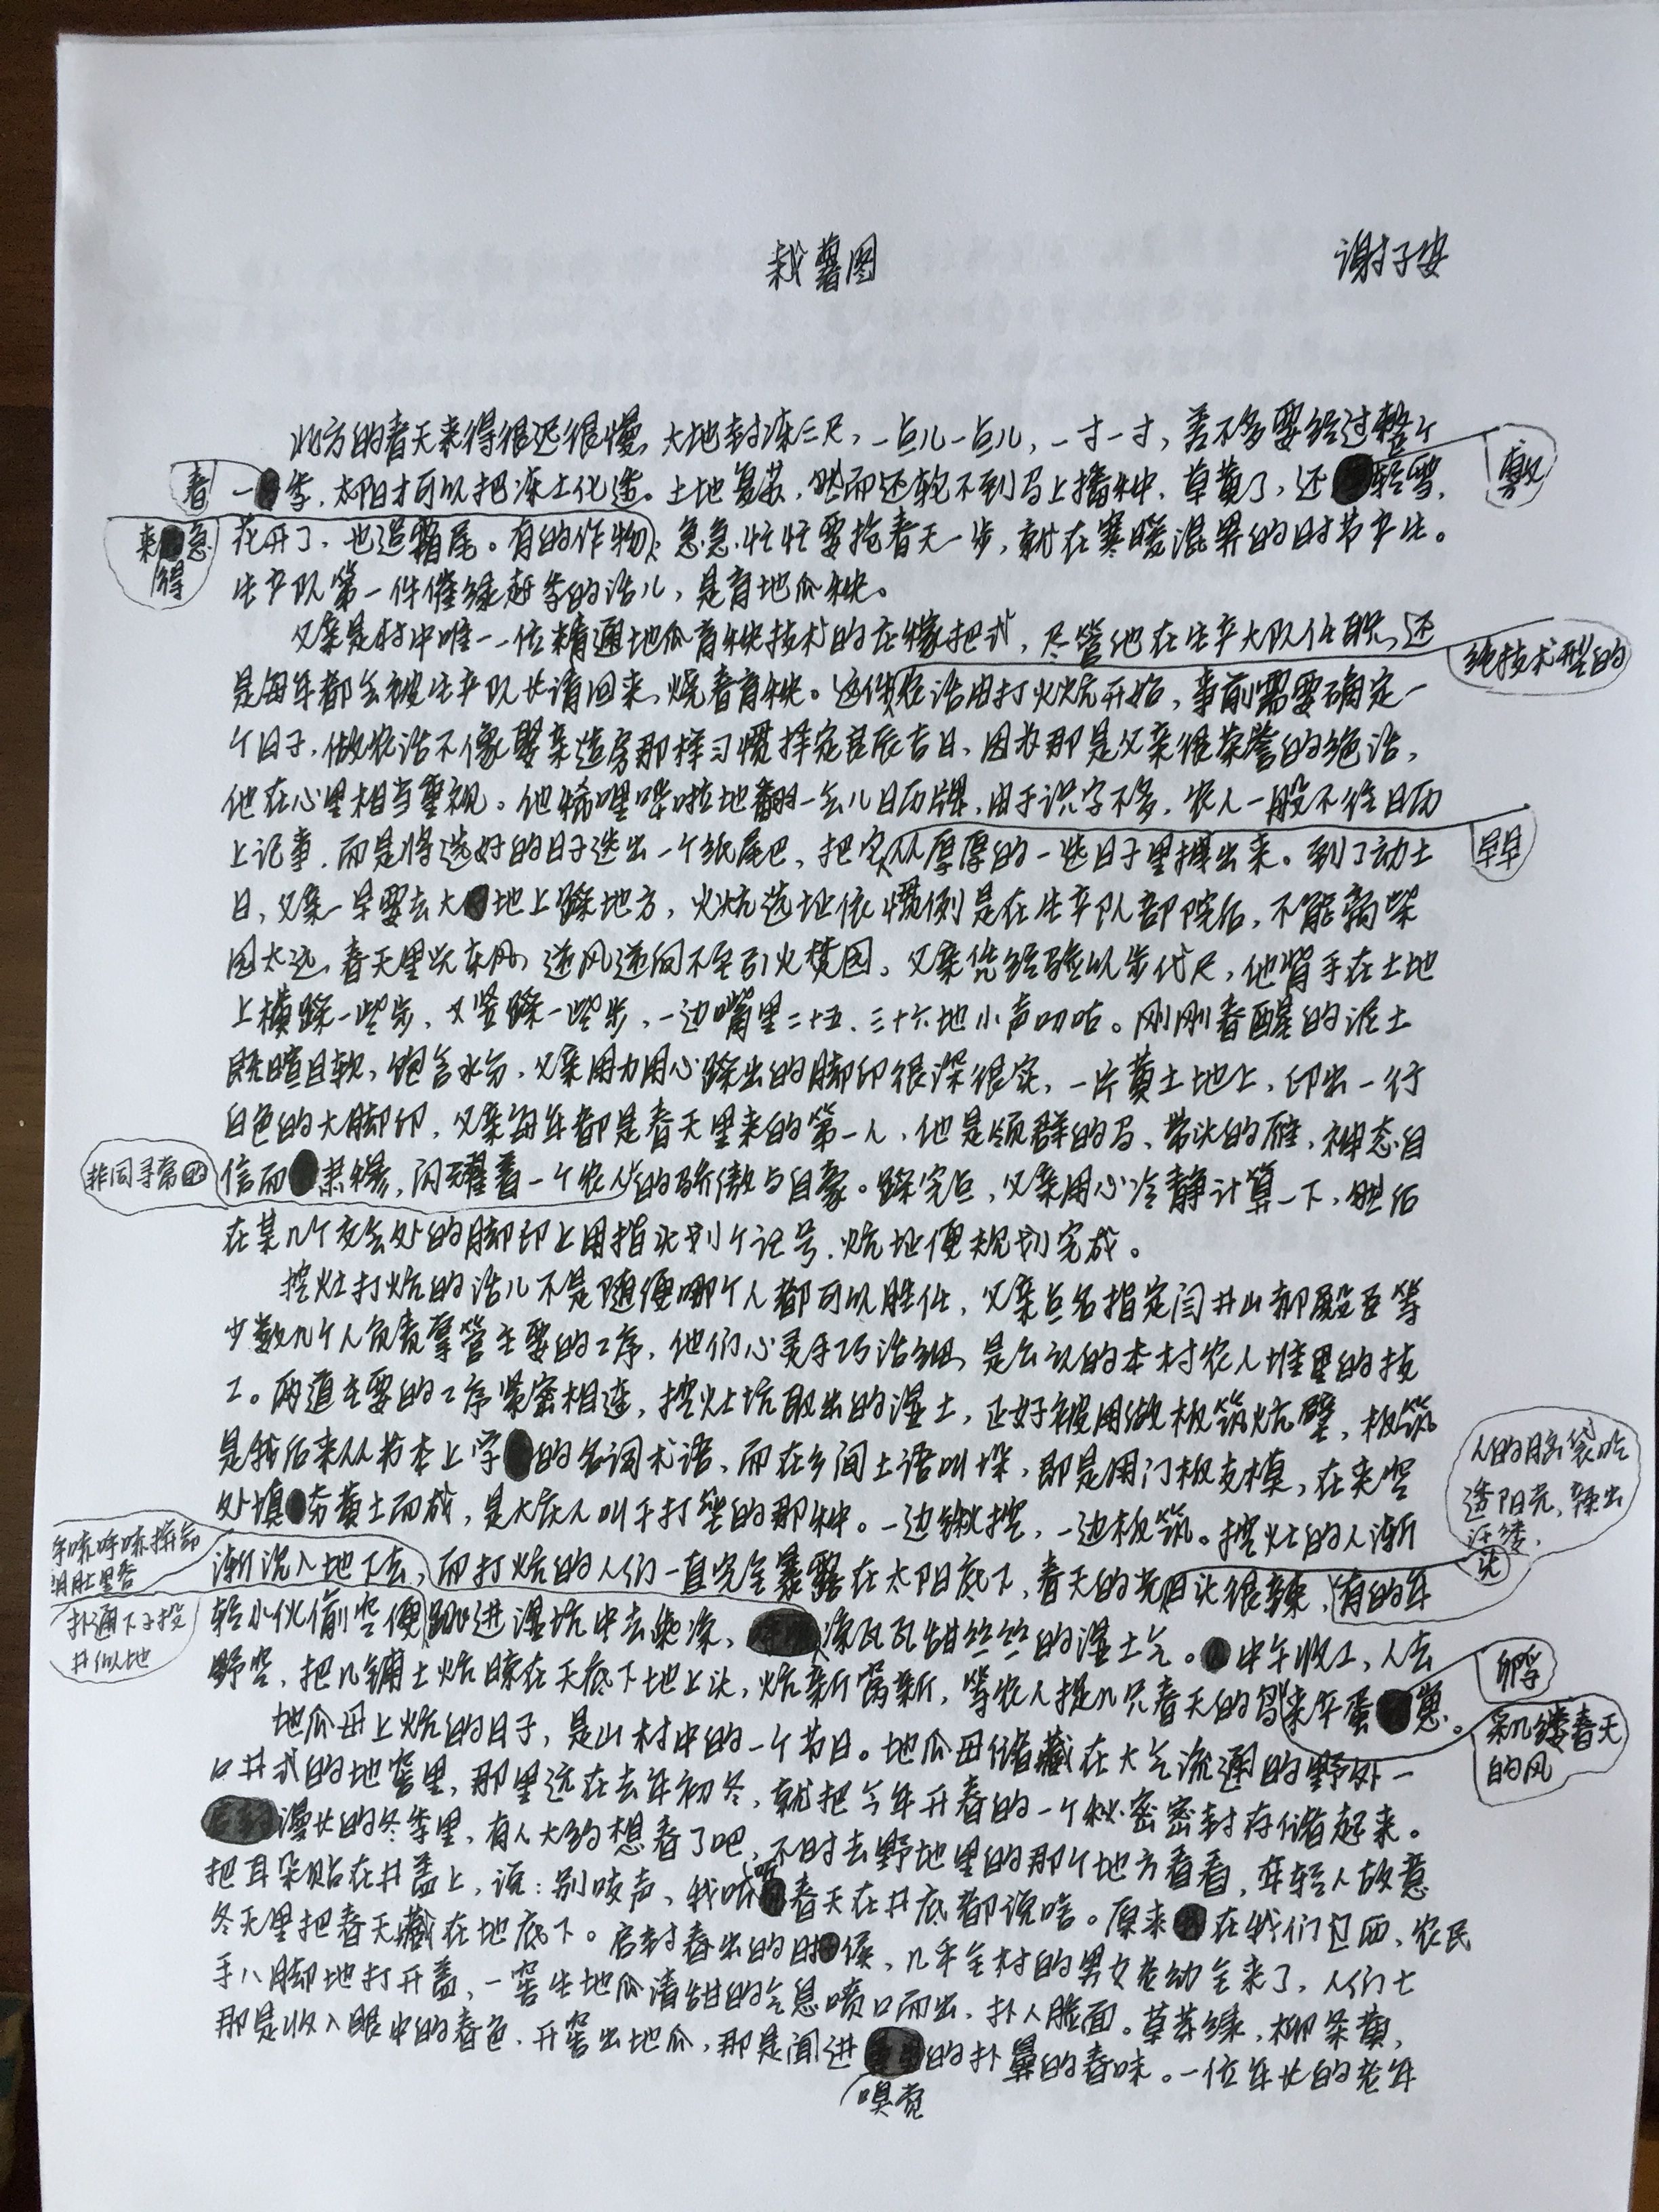 栽薯图
谢子安
北方的春天来得很迟很慢，大地封冻三尺，一点儿一点儿，一寸一寸，差不多要经过整个
一季，太阳才可以把冻土化透。土地复苏，然而还轮不到马上播种，草黄了，还轻雪，
春
寒
花开了，也追霜尾。有的作物，急急忙忙要抢春天一步，就在寒暖混界的时节产生。
来得急
生产队第一件催绿赶季的活儿，是育地瓜秧。
父亲是村中唯一一位精通地瓜育秧技术的庄稼把式，尽管他在生产大队任职，还
纯技术型的
是每年都会被生产队长请回来，烧春育秧。这件农活由打火炕开始，事前需要确定一
个日子，做农活不像娶亲造房那样习惯择定良辰吉日，因为那是父亲很荣誉的绝活，
他在心里相当重视。他稀哩哗啦地翻一会儿日历牌，由于识字不多，农人一般不往日历
上记事，而是将选好的日子迭出一个纸尾巴，把它从厚厚的一迭日子里揪出来。到了动土
早早
日，父亲一早要去大地上踩地方，火炕选址依惯例是在生产队部院后，不能离柴
园太远，春天里炊东风，逆风逆向不至引火焚园。父亲凭经验以步代尺，他背手在土地
上横踩一些步，又竖踩一些步，一边嘴里二十五、三十六地小声叨咕。刚刚春醒的泥土
既暄且软，饱含水分，父亲用力用心踩出的脚印很深很实，一片黄土地上，印出一行
白色的大脚印，父亲每年都是春天里来的第一人，他是领群的马，带头的雁，神态自
信而，闪耀着一个农人的骄傲与自豪。踩完点，父亲用心冷静计算一下，然后
非同寻常的
在某几个交会处的脚印上用指头划个记号，炕址便规划完成。
挖灶打炕的活儿不是随便哪个人都可以胜任，父亲点名指定闫井山郝殿臣等
少数几个人负责掌管主要的工序，他们心灵手巧活细，是公认的本村农人堆里的技
工。两道主要的工序紧密相连，挖灶坑取出的湿土，正好被用做板筑炕壁，板筑
是我后来从书本上学的名词术语，而在乡间土语叫垛，即是用门板支模，在夹空
处填夯黄土而成，是大庆人叫干打垒的那种。一边锹挖，一边板筑。挖灶的人渐
人的脑袋吃
透阳光，辣出
汗缕，
渐沉入地下去，而打炕的人们一直完全暴露在太阳底下，春天的光日头很辣，有的年
轻小伙偷空便跳进湿坑中去乘凉，凉瓦瓦甜丝丝的湿土气。中午收工，人去
扑通下子投
井似地
野空，把几铺土炕晾在天底下地上头，炕新窝新，等农人捉几只春天的鸟来年蛋崽。
孵
采几缕春天
的风
地瓜母上炕的日子，是山村中的一个节日。地瓜母储藏在大气流通的野外一
口井式的地窖里，那里远在去年初冬，就把今年开春的一个秘密密封存储起来。
漫长的冬季里，有人大约想春了吧，不时去野地里的那个地方看看，年轻人故意
把耳朵贴在井盖上，说：别吱声，我听春天在井底都说啥。原来在我们辽西，农民
冬天里把春天藏在地底下。启封春出的时候，几乎全村的男女老幼全来了，人们七
手八脚地打开盖，一窖生地瓜清甜的气息喷口而出，扑人脸面。草芽绿，柳条黄，
那是收入眼中的春色，开窖出地瓜，那是闻进的扑鼻的春味。一位年长的老年
嗅觉